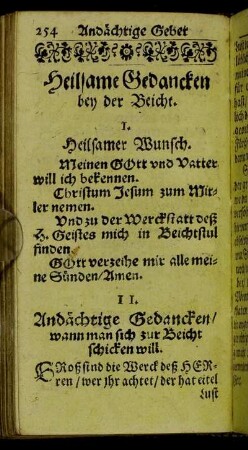 254 Andächtige Gebet
Heilsame Gedancken
bey der Beicht.
I.
Heilsamer Wunsch.
Meinen GOtt vnd Vatter
will ich bekennen.
Christum Jesum zum Mit-
ler nemen.
Vnd zu der Werckstatt deß
H. Geistes mich in Beichtstul
finden.
GOtt verzeihe mir alle mei-
ne Sünden/ Amen.
II.
Andächtige Gedancken/
wann man sich zur Beicht
schicken will.
GRoß sind die Werck deß HER-
ren / wer jhr achtet / der hat eitel
Lust